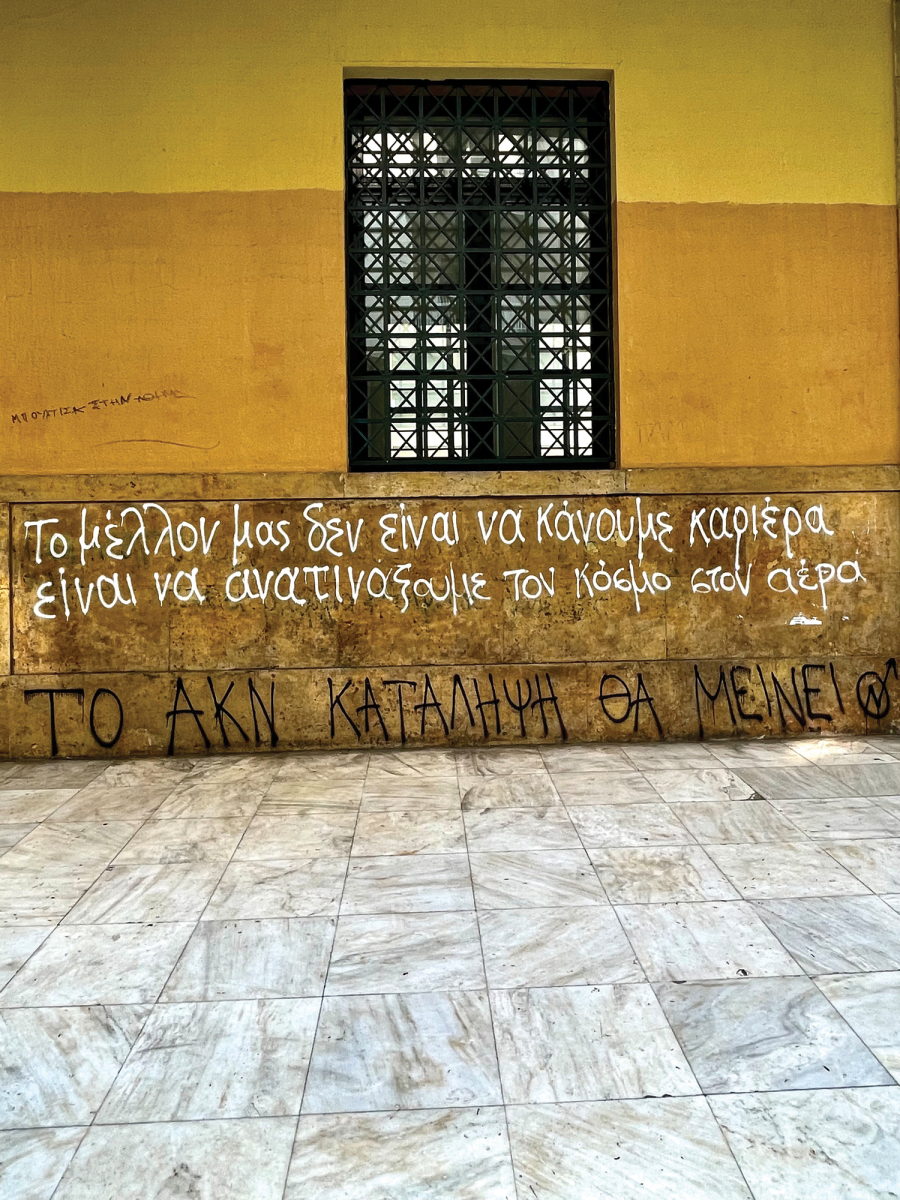 ΣΤΗΝ
Το μέλλον μας δεν είναι να κάνουμε καριέρα
είναι να ανατινάξουμε τον κόσμο στον αέρα
ΤΟ ΑΚΝ ΚΑΤΑΛΗΨΗ ΘΑ ΜΕΙΝΕΙ